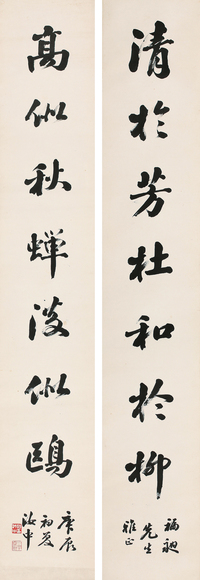 清於芳杜和於柳
福昶
先生
雅正
高似秋蟬淡似鷗
庚辰
初夏
汝申